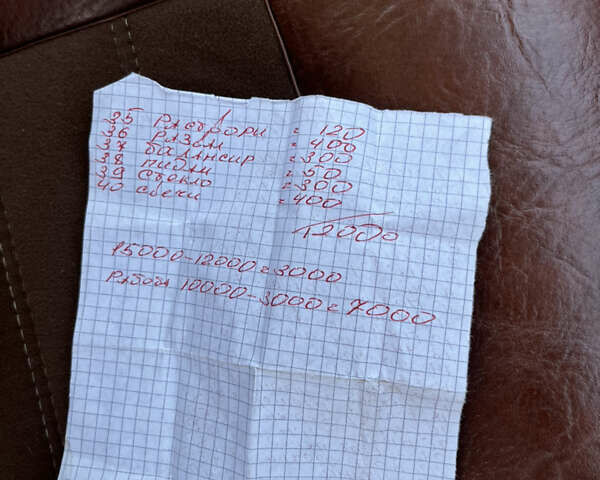 35 = 120
36 = 400
37 балансир = 300
38 педали = 50
39 = 300
40 свечи = 400
12000
15000-12000=3000
Работа 10000-3000=7000